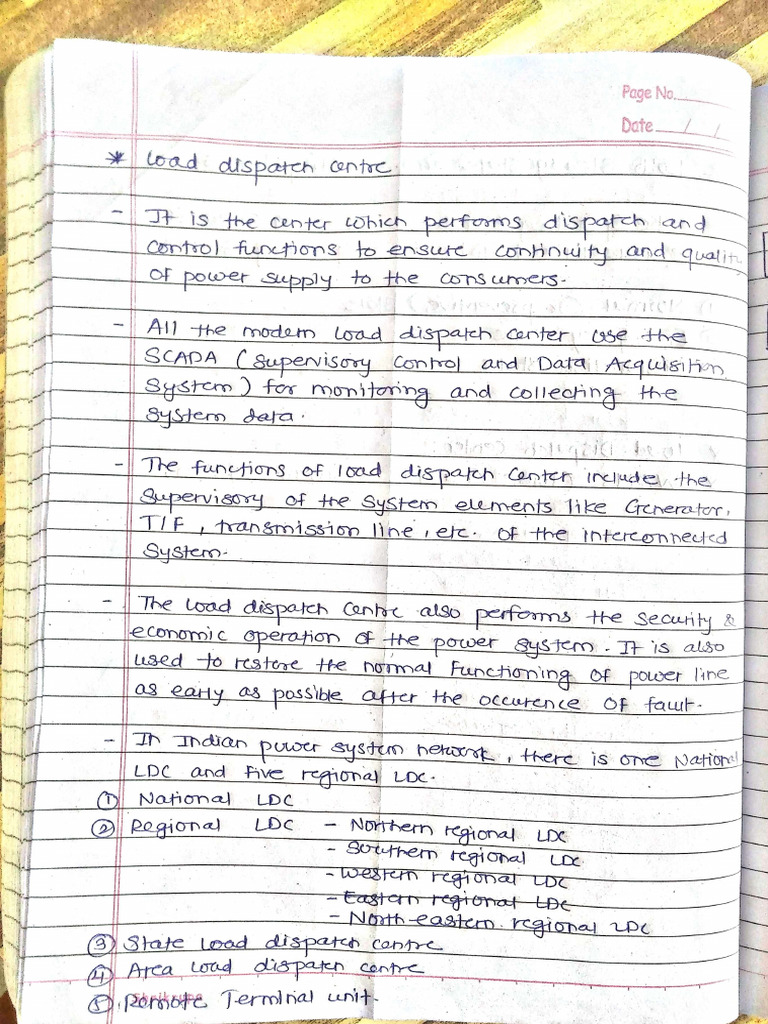 Page No.
Date / /
* Load dispatch centre.
- It is the center which performs dispatch and
control functions to ensure continuity and qualit
of power supply to the consumers.
- All the modern load dispatch center use the
SCADA (Supervisory Control and Data Acquisition
System) for monitoring and collecting the
System data.
- The functions of load dispatch center include the
Supervisory of the System elements like Generator,
T/F, transmission line, etc. of the interconnected
System.
- The load dispatch centre also performs the security &
economic operation of the power system. It is also
used to restore the normal functioning of power line
as early as possible after the occurence of fault.
- In Indian power system network, there is one National
LDC and five regional LDC.
① National LDC
② Regional LDC - Northern regional LDC
- Southern regional LDC
- Western regional LDC
- Eastern regional LDC
- North-eastern regional LDC
③ State Load dispatch centre
④ Area load dispatch centre
⑤ Remote Terminal unit.